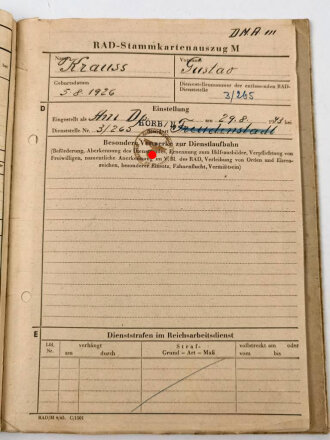 DMA III
RAD-Stammkartenauszug M
Name Vorname
Krauss Gustav
Geburtsdatum Dienststellennummer der entlassenden RAD-
5.8.1926 Dienststelle 3/265
D Einstellung
Eingestellt als am 29.8. 19 bei
Dienststelle Nr. 3/265 Standort Freudenstadt
HORB/N
Besondere Vermerke zur Dienstlaufbahn
(Beförderung, Aberkennung des Ernennung zum Hilfsausbilder, Verpflichtung von
Freiwilligen, namentliche Anerkennung im V.Bl. des RAD, Verleihung von Orden und Ehren-
zeichen, besonderer Einsatz, Fahnenflucht, Vermißtsein)
E Dienststrafen im Reichsarbeitsdienst
Lfd. verhängt Straf- vollstreckt am oder
Nr. am durch Grund – Art – Maß vom bis
RAD/M